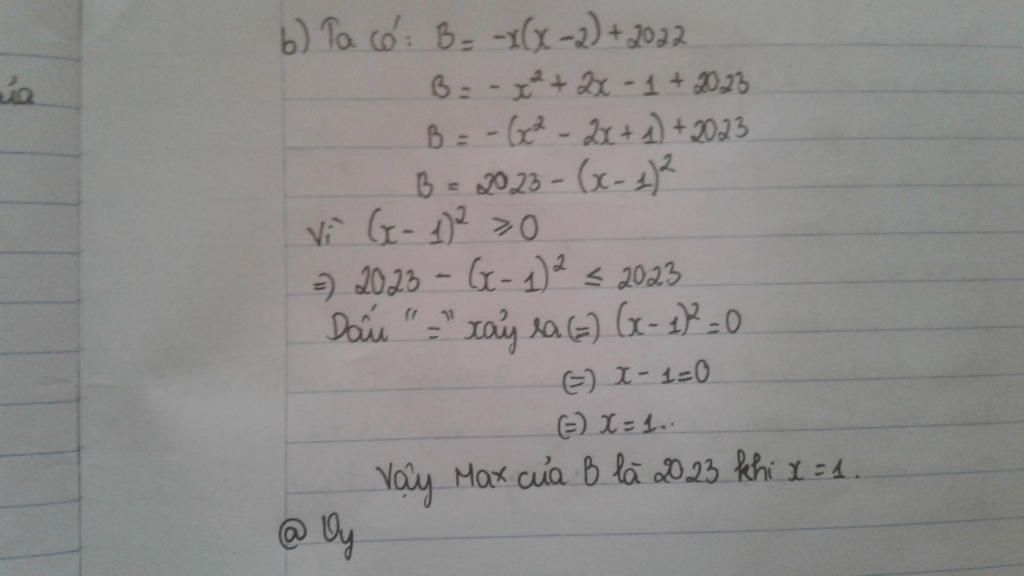 b) Ta có: B = -x(x-2) + 2022
B = - x² + 2x - 1 + 2023
B = - (x² - 2x + 1) + 2023
B = 2023 - (x - 1)²
Vì (x - 1)² ≥ 0
=) 2023 - (x - 1)² ≤ 2023
Dấu "=" xảy ra (=) (x - 1)² = 0
(=) x - 1 = 0
(=) x = 1..
Vậy Max của B là 2023 khi x = 1.
@ Vy